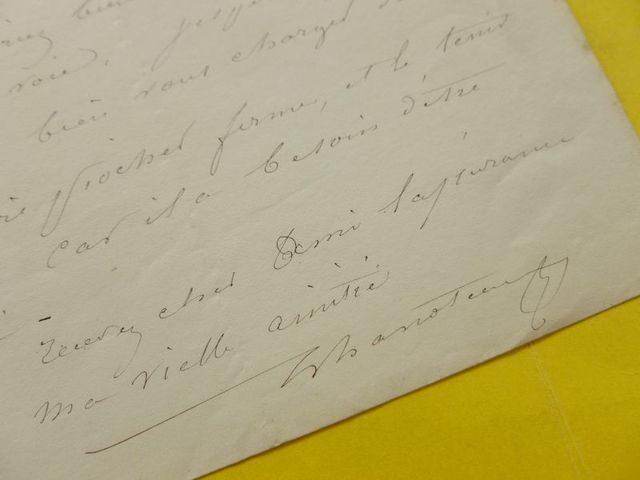 bien
voie, jusqu
bien vous charger d
rocher ferme, et le tenir
car il a besoin d'être
recevez cher Ami l'assurance
ma vielle amitié